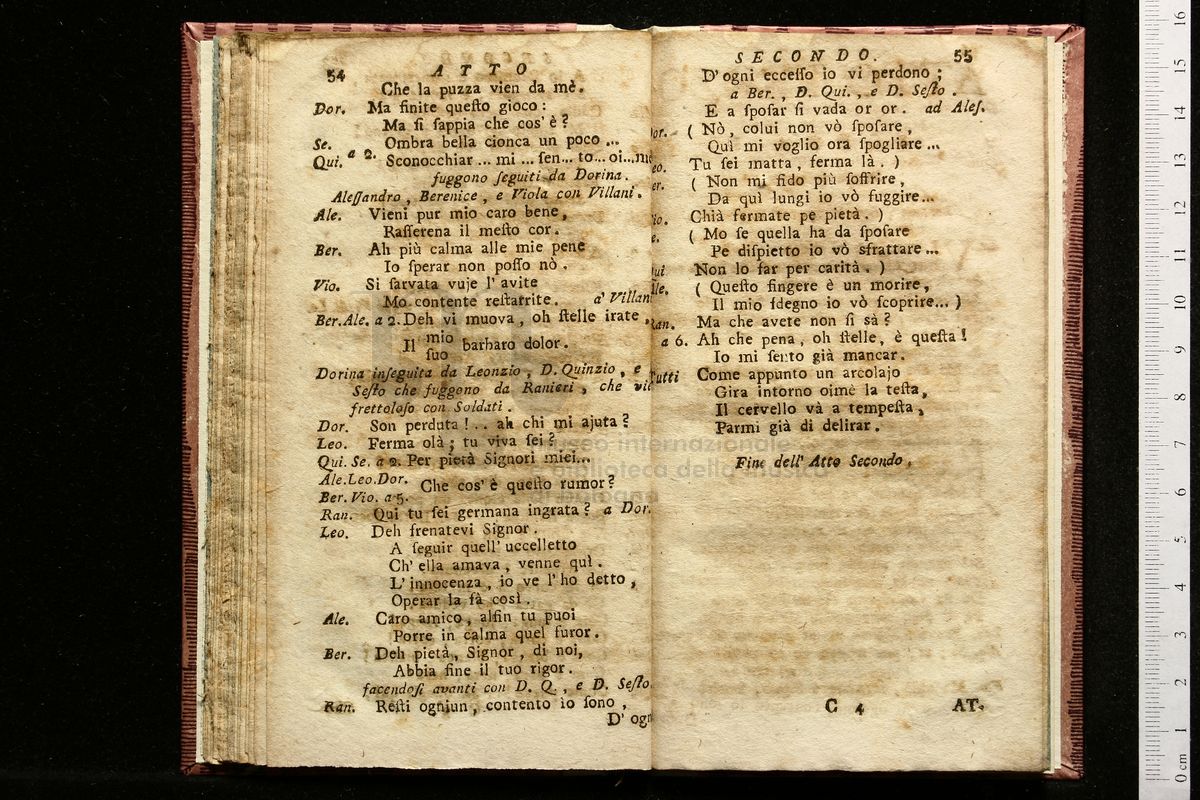 54 ATTO
Che la puzza vien da mè.
Dor. Ma finite queſto gioco:
Ma ſi ſappia che cos' è?
Se. Ombra bella cionca un poco ...
Qui. a 2. Sconocchiar ... mi ... ſen... to... oi...
fuggono ſeguiti da Dorina.
Aleſſandro, Berenice, e Viola con Villani.
Ale. Vieni pur mio caro bene,
Raſſerena il meſto cor.
Ber. Ah più calma alle mie pene
Io ſperar non poſſo nò.
Vio. Si ſarvata vuje l' avite
Mo contente reſtarrite. a' Villan
Ber. Ale. a 2. Deh vi muova, oh ſtelle irate,
Il mio barbaro dolor.
ſuo
Dorina inſeguita da Leonzio, D. Quinzio, e
Seſto che fuggono da Ranieri, che vie
frettoloſo con Soldati.
Dor. Son perduta!.. ah chi mi ajuta?
Leo. Ferma olà; tu viva ſei?
Qui. Se. a 2. Per pietà Signori miei...
Ale. Leo. Dor. Che cos' è queſto rumor?
Ber. Vio. a 5.
Ran. Qui tu ſei germana ingrata? a Dor.
Leo. Deh frenatevi Signor.
A ſeguir quell' uccelletto
Ch' ella amava, venne quì.
L' innocenza, io ve l' ho detto,
Operar la fà così.
Ale. Caro amico, alfin tu puoi
Porre in calma quel furor.
Ber. Deh pietà, Signor, di noi,
Abbia fine il tuo rigor.
facendoſi avanti con D. Q., e D. Seſto.
Ran. Reſti ogniun, contento io ſono,
D' ogn
SECONDO. 55
D' ogni ecceſſo io vi perdono;
a Ber., D. Qui., e D. Seſto.
E a ſpoſar ſi vada or or. ad Aleſ.
or. ( Nò, colui non vò ſpoſare,
Quì mi voglio ora ſpogliare ...
eo. Tu ſei matta, ferma là. )
er. ( Non mi fido più ſoffrire,
Da quì lungi io vò fuggire...
io. Chià fermate pe pietà. )
e. ( Mo ſe quella ha da ſpoſare
Pe diſpietto io vò sfrattare ...
ui Non lo far per carità. )
lle. ( Queſto fingere è un morire,
Il mio ſdegno io vò ſcoprire... )
Ran. Ma che avete non ſi sà?
a 6. Ah che pena, oh ſtelle, è queſta!
Io mi ſento già mancar.
Tutti Come appunto un arcolajo
Gira intorno oimè la teſta,
Il cervello và a tempeſta,
Parmi già di delirar.
Fine dell' Atto Secondo.
C 4 AT.
museo internazionale
e biblioteca della musica
di bologna
0 cm 1 2 3 4 5 6 7 8 9 10 11 12 13 14 15 16